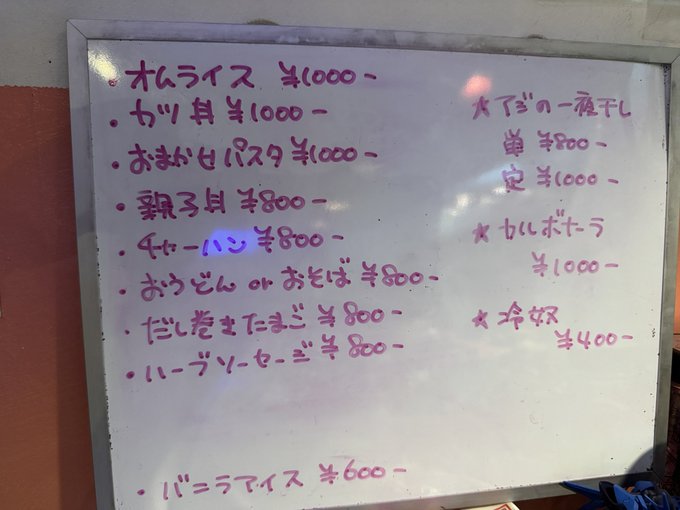 ・オムライス ¥1000-
・カツ丼 ¥1000-
・おまかせパスタ ¥1000-
・親子丼 ¥800-
・チャーハン ¥800-
・おうどん or おそば ¥800-
・だし巻きたまご ¥800-
・ハーブソーセージ ¥800-
・バニラアイス ¥600-
★アジの一夜干し
単 ¥800-
定 ¥1000-
★カルボナーラ
¥1000-
★冷奴
¥400-